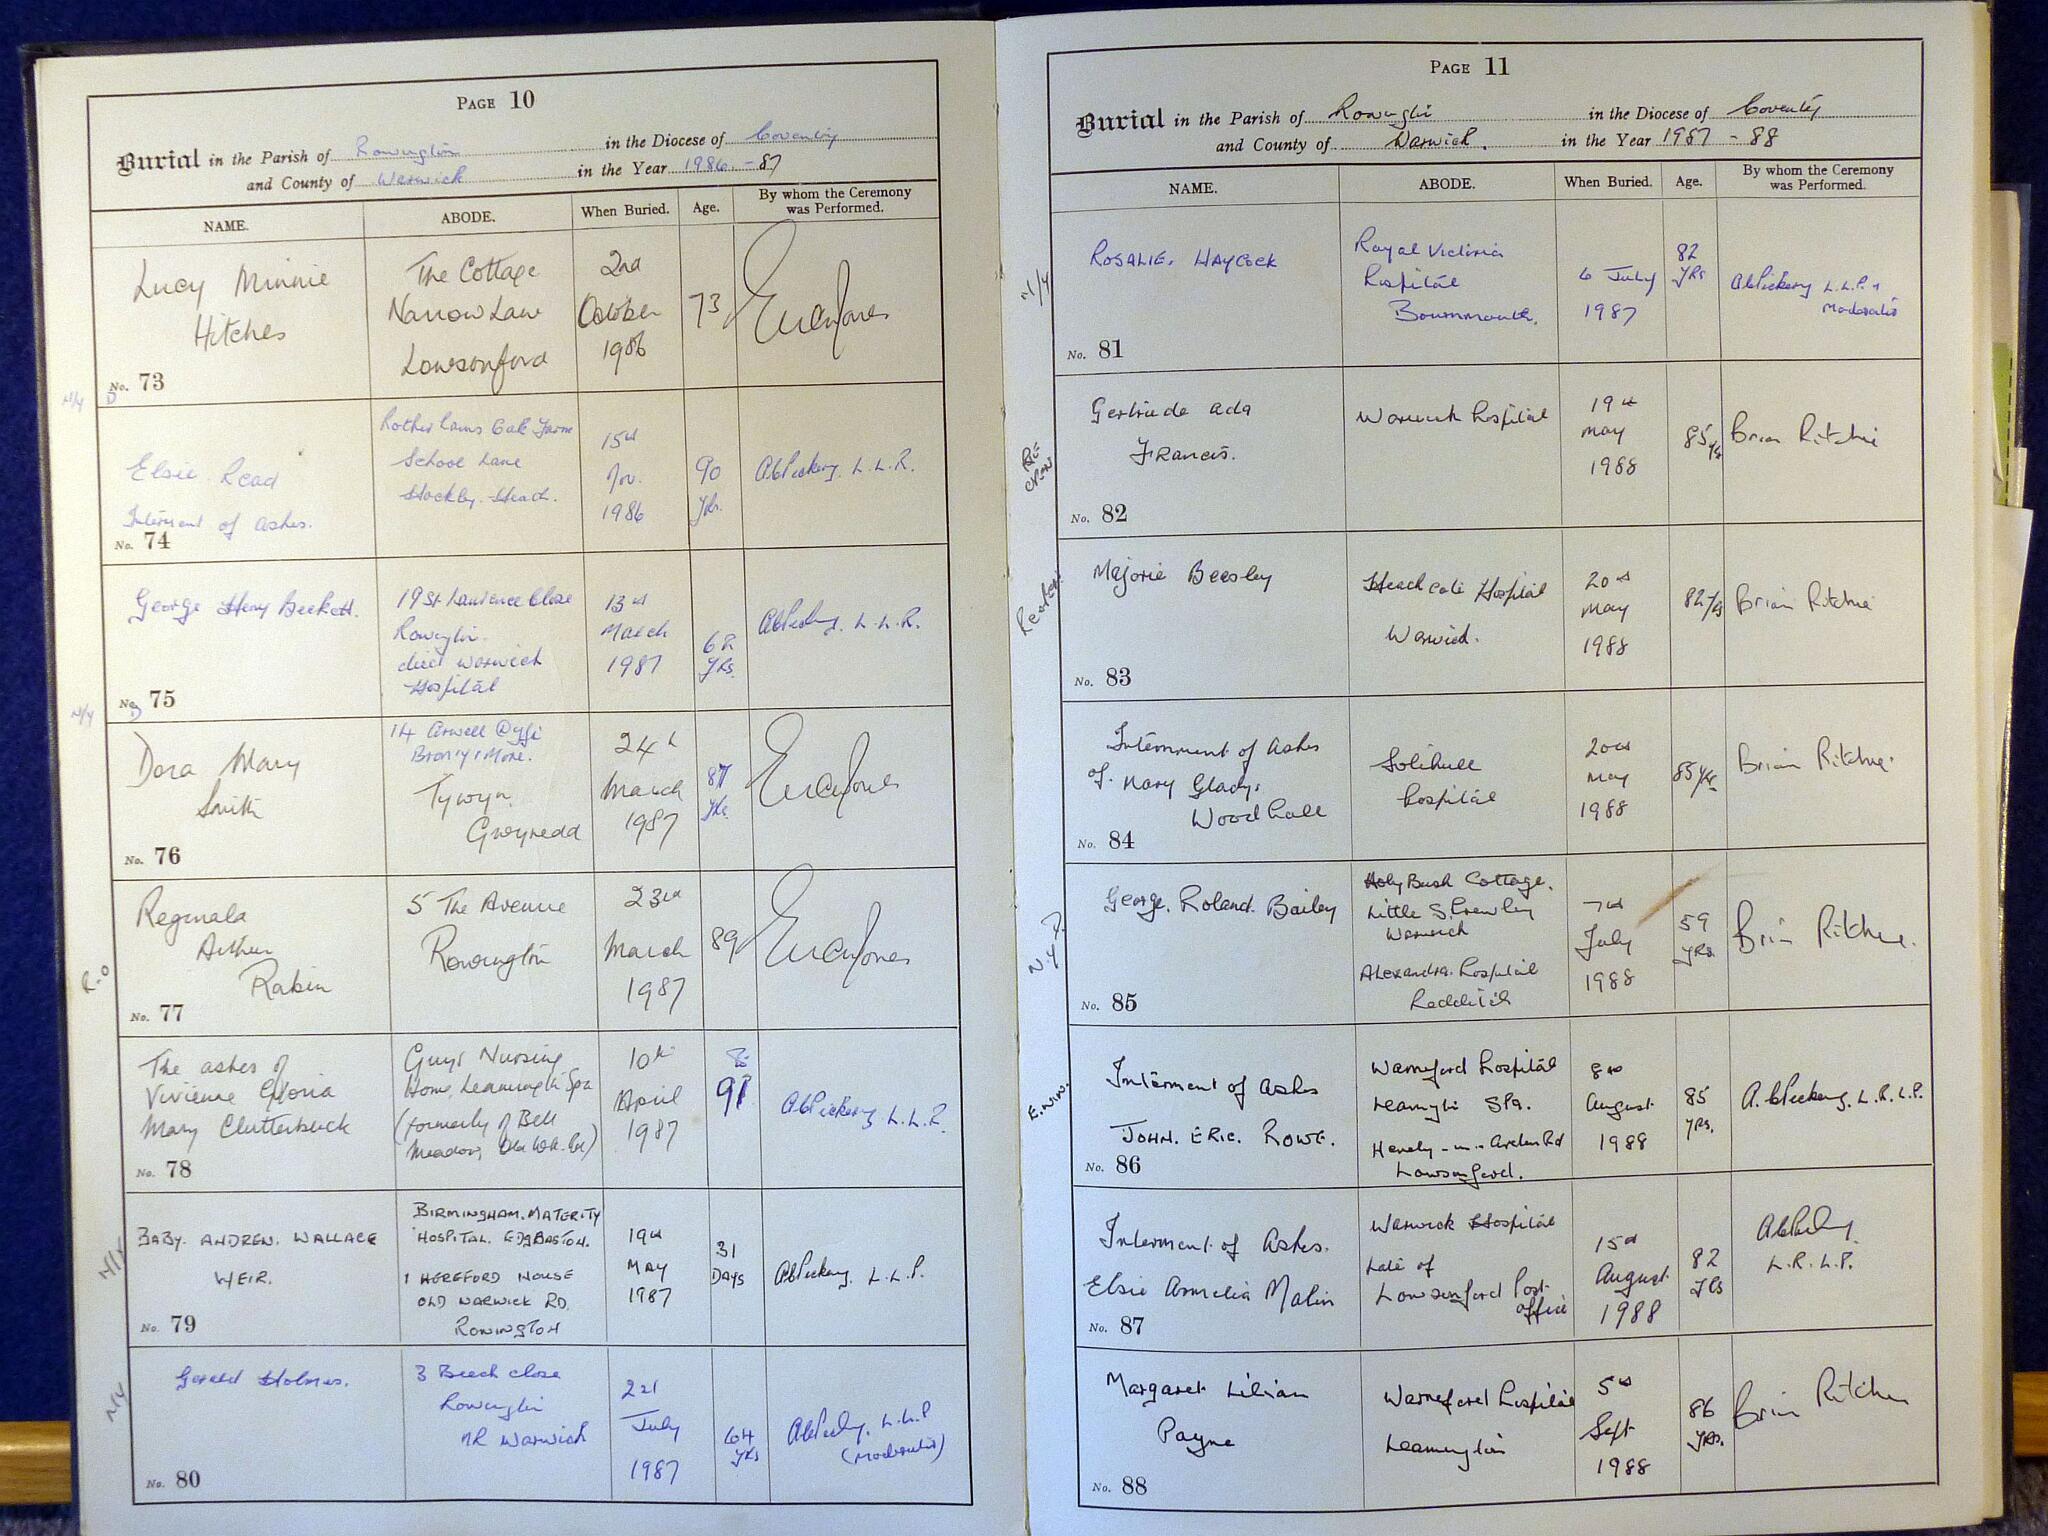 PAGE 10
Burial in the Parish of Rowington in the Diocese of Coventry
and County of Warwick in the Year 1986 - 87
NAME. ABODE. When Buried. Age. By whom the Ceremony was Performed.
Lucy Minnie
Hitches
The Cottage
Narrow Lane
Lowsonford
2nd
October
1986
73
No. 73
N/Y
Elsie Read
Interment of Ashes.
Oak Farm
School Lane
Hockley Heath.
15th
Nov.
1986
90
Yrs.
L.L.R.
No. 74
George Henry Beckett.
19 St Laurence Close
Rowington
died Warwick
Hospital
13th
March
1987
62
Yrs
L.L.R.
No. 75
N/Y
Dora Mary
Smith
14
Tywyn
Gwynedd
24th
March
1987
87
Yrs.
No. 76
Reginald
Arthur
Rabin
5 The Avenue
Rowington
23rd
March
1987
89
R.O
No. 77
The ashes of
Vivienne Gloria
Mary Clutterbuck
Guys Nursing
Home, Leamington Spa
(formerly of Bell
Meadow,
10th
April
1987
91
L.L.R.
No. 78
BABY. ANDREW. WALLACE
WEIR.
BIRMINGHAM. MATERITY
HOSPITAL. EDGBASTON.
1 HEREFORD HOUSE
OLD WARWICK RD.
ROWINGTON
19th
MAY
1987
31
DAYS
L.L.P.
No. 79
Gerald Holmes.
3 Beech Close
Rowington
NR Warwick
July
1987
64
YRS
L.L.P
(Moderator)
No. 80
PAGE 11
Burial in the Parish of Rowington in the Diocese of Coventry
and County of Warwick. in the Year 1987 - 88
NAME. ABODE. When Buried. Age. By whom the Ceremony was Performed.
ROSALIE. HAYCOCK
Royal Victoria
Hospital
Bournmouth.
6 July
1987
82
YRS
L.L.P.
Moderator
No. 81
Gertrude Ada
Francis.
Warwick Hospital
19th
May
1988
85 Yrs
Brian Ritchie
No. 82
Marjorie Beesley
Heathcote Hospital
Warwick.
20th
May
1988
82 Yrs
Brian Ritchie
No. 83
Internment of Ashes
of Mary Gladys
Woodhall
Solihull
Hospital
20th
May
1988
85 Yrs
Brian Ritchie.
No. 84
George. Roland. Bailey
Holy Bush Cottage.
Little Shrewley
Warwick
Alexandra Hospital
Redditch
7th
July
1988
59
YRS.
Brian Ritchie.
No. 85
Interment of Ashes
JOHN. ERIC. ROWE.
Warneford Hospital
Leamington SPA.
Henley-in-Arden Rd
Lowsonford.
8th
August
1988
85
YRS.
L.R.L.P.
No. 86
Interment of Ashes.
Elsie Ammelia Malin
Warwick Hospital
Late of
Lowsonford Post
office
15th
August
1988
82
Yrs
L.R.L.P.
No. 87
Margaret Lilian
Payne
Warneford Hospital
Leamington
5th
Sept
1988
86
YRS.
Brian Ritchie
No. 88